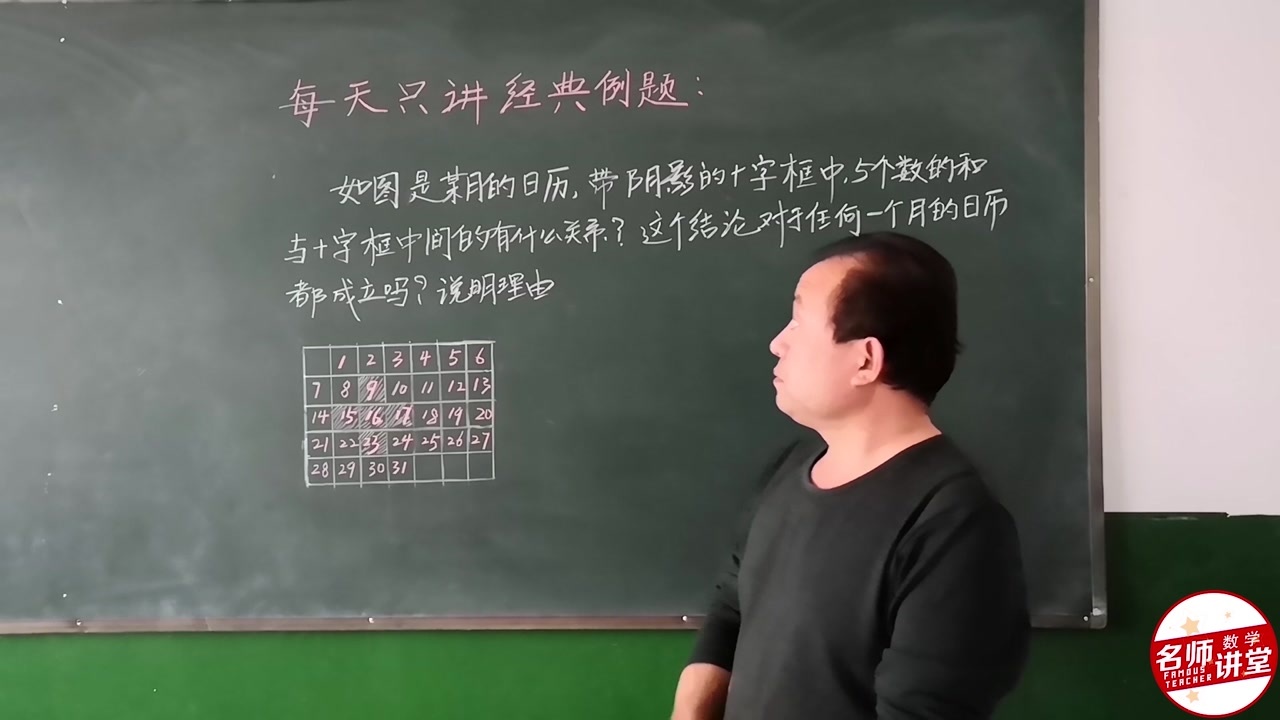 每天只讲经典例题:
如图是某月的日历,带阴影的十字框中,5个数的和
与十字框中间的有什么关系?这个结论对于任何一个月的日历
都成立吗?说明理由
1 2 3 4 5 6
7 8 9 10 11 12 13
14 15 16 17 18 19 20
21 22 23 24 25 26 27
28 29 30 31
名师 数学
讲堂
FAMOUS
TEACHER